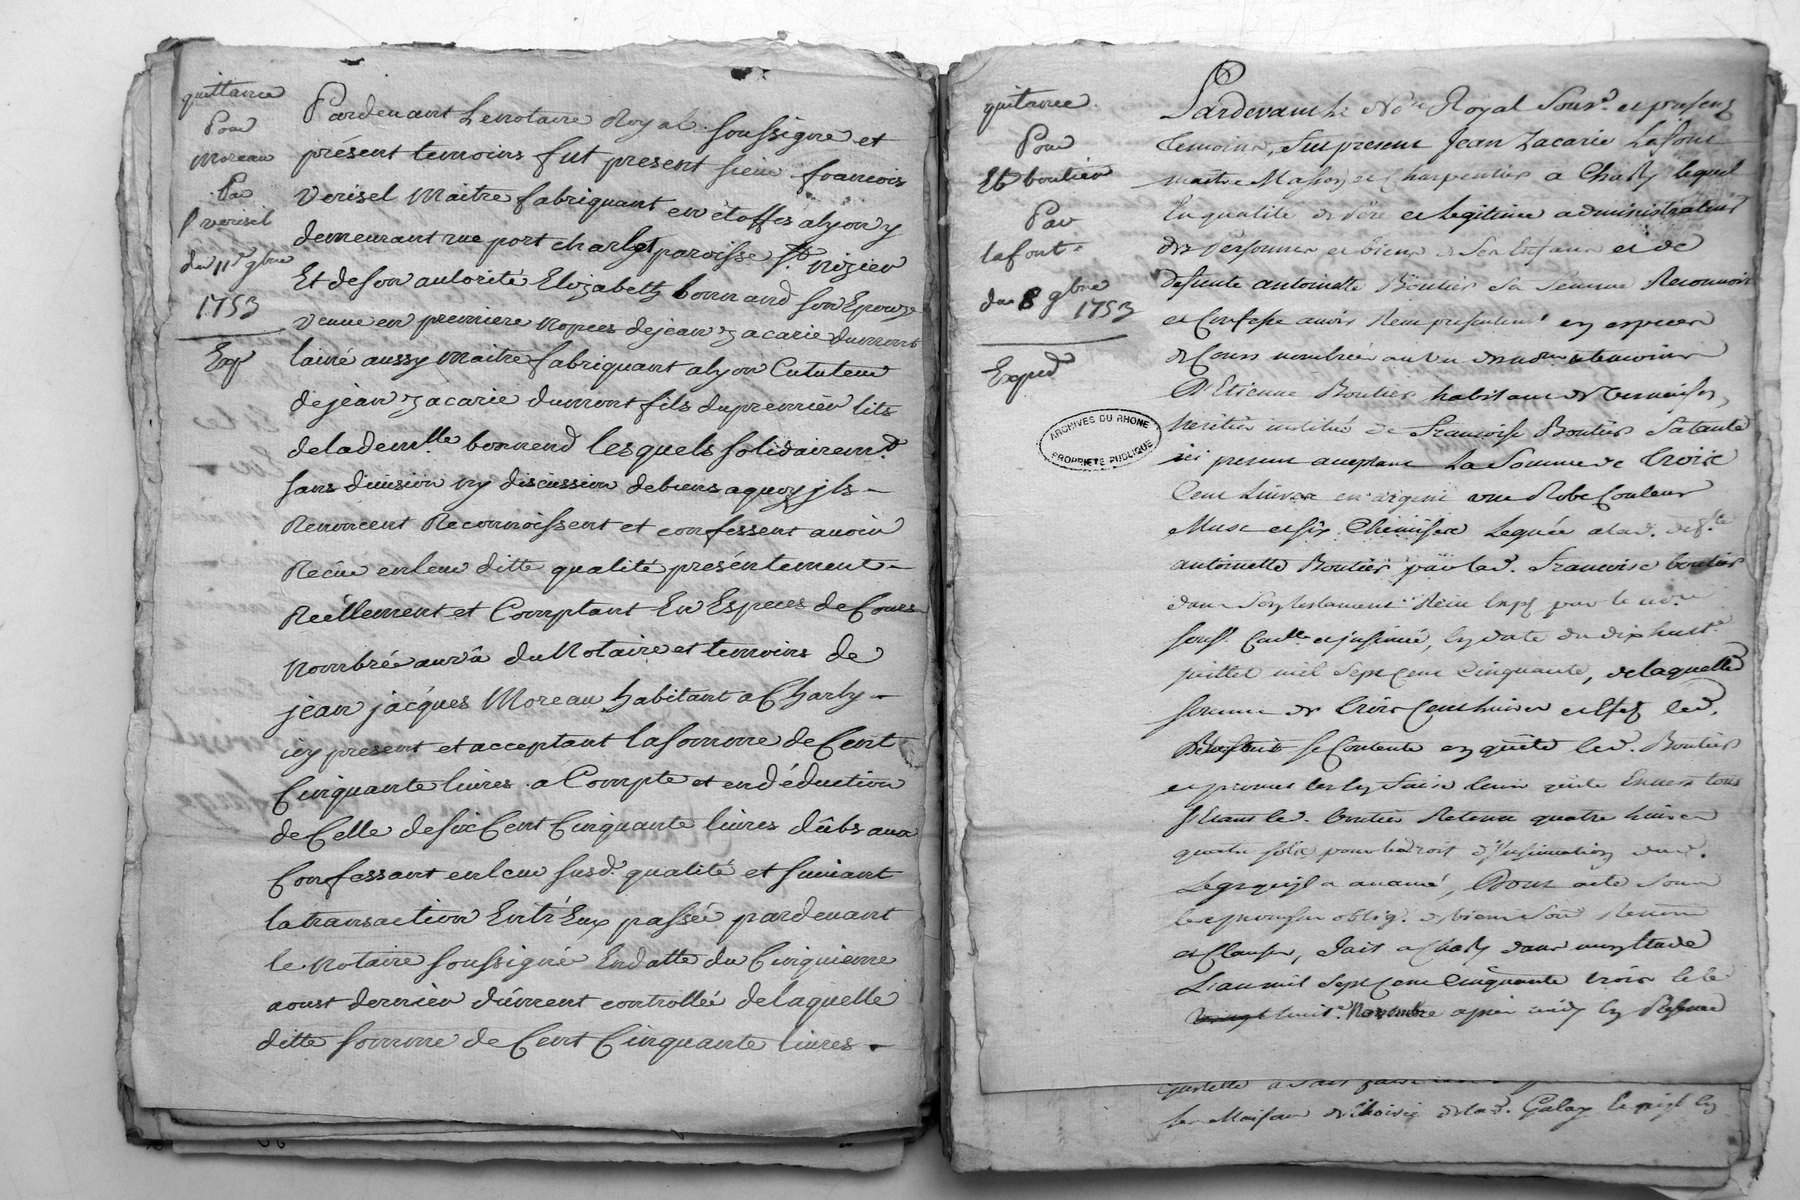 quittance
Pour
Moreau
Par
S verisel
du 11e 9bre
1753
Exp
Pardevant Le notaire Royal soussigné et
présent temoins fut present sieur francois
verisel Maitre fabriquant en étoffes alyon y
demeurant rue port charlet paroisse St nizier
Et de son autorité Elizabeth bonnand son Epouze
veuve en premiere nopces de jean zacarie dumont
lainé aussy Maitre fabriquant alyon Cututeur
de jean zacarie dumont fils du premier lits
de lademlle bonnend lesquels solidairemt
sans division ny discussion de biens a quoy jls
Renoncent Reconnoissent et confessent avoir
Recue en leur ditte qualité présentement
Réellement et Comptant En Especes de Cours
Nombrée au vû du Notaire et temoins de
jean jacques Moreau habitant a Charly
icy present et acceptant la somme de Cent
Cinquante livres a Compte et en déduction
de Celle de six Cent Cinquante livres dûbs aux
Confessant en leur susd. qualité et suivant
la transaction Entr'Eux passée pardevant
le Notaire soussigné En datte du Cinquieme
aoust dernier dûment controllée de laquelle
ditte somme de Cent Cinquante livres
quitance
Pour
Et boutier
Par
lafont
du 8 9bre 1753
Exped
Pardevant le Nore Royal Sousd. et presens
temoins, fut present Jean Zacarie Lafont
maitre Masson et Charpentier a Charly lequel
En qualité de Père et legitime administrateur
des Personnes et biens de Ses Enfans et de
defunte antoinette Boutier Sa femme Reconnoit
et Confesse avoir Reçu presentemt en especes
de Cours nombrée au vu du nore et temoins
D'Etienne Boutier habitant de vernaison,
heritier institué de francoise Boutier Sa tante
ici present acceptant La Somme de trois
Cent Livres en argent une Robe Couleur
Musc et six Chemises Leguée a lad. deffte
antoinette Boutier par lad. francoise boutier
dans Son testament Reçu par le nore
souse. Controllé et insinué, en date du dix huite
juillet mil sept cent Cinquante, de laquelle
somme de trois Cent livres et effets led.
se Contente en quitte led. Boutier
et promet les en faire tenir quitte Envers tous
led. boutier Retenu quatre livres
quatre sols pour le droit d'insinuation dud.
Legs qu'il a avancé, Dont acte Sous
les promesses oblig. de biens Soub. Renon
et Clauses, fait a Charly dans mon Etude
L'an mil sept cent Cinquante trois le
huite. Novembre apres midy En Presence
les Maisons de lad. Galay
ARCHIVES DU RHONE
PROPRIETE PUBLIQUE